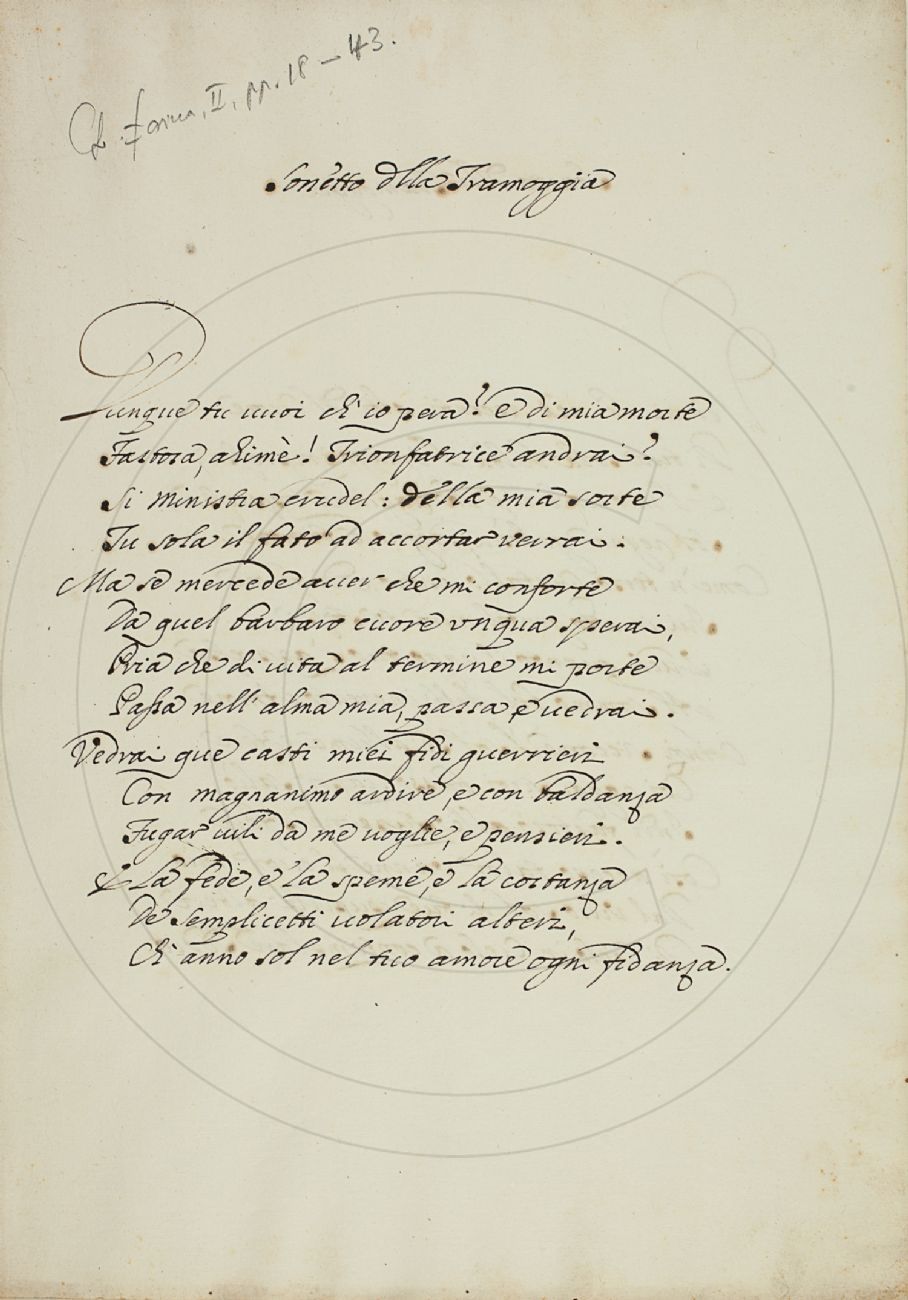 Cf. Farina, II, pp. 18 – 43.
Sonetto dlla Tramoggia
Dunque tu vuoi ch' io pera? e di mia morte
Fastosa, ahimè! Trionfatrice andrai?
Si ministra crudel: della mia sorte
Tu sola il fato ad accortar verrai.
Ma se mercede aver che mi conforte
Da quel barbaro cuore vnqua sperai,
Pria che di vita al termine mi porte
Passa nell' alma mia, passa e vedrai.
Vedrai que casti miei fidi guerrieri
Con magnanimo ardire, e con baldanza
Fugar vili da me voglie, e pensieri.
E la fede, e la speme, e la costanza
De semplicetti violatori alteri,
Ch' anno sol nel tuo amore ogni fidanza.